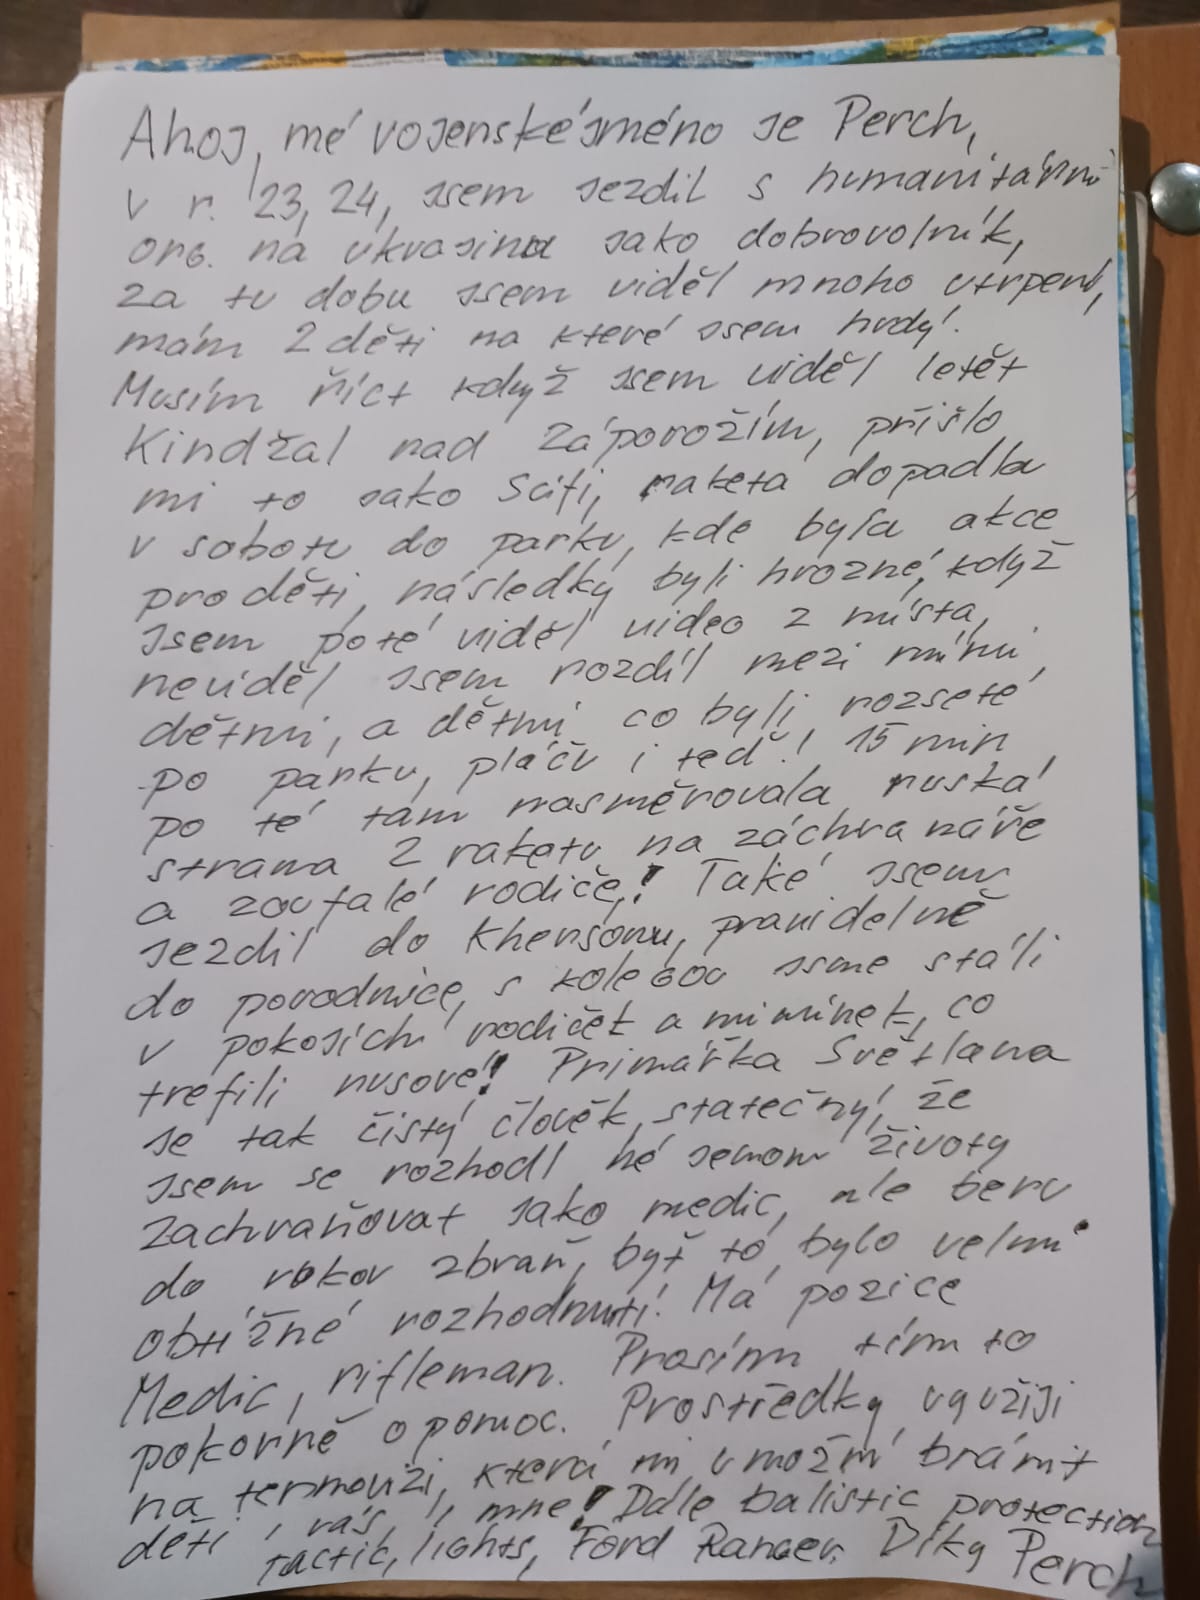 Ahoj, mé vojenské jméno je Perch,
v r. '23, 24, jsem jezdil s humanitární
org. na ukrajinu jako dobrovolník,
za tu dobu jsem viděl mnoho utrpení,
mám 2 děti na které jsem hrdý.
Musím říct když jsem viděl letět
Kindžal nad Záporožím, přišlo
mi to jako Scifi, raketa dopadla
v sobotu do parku, kde byla akce
pro děti, následky byli hrozné, když
jsem poté viděl video z místa,
neviděl jsem rozdíl mezi mými
dětmi, a dětmi co byli rozseté
po parku, pláču i teď! 15 min
po té tam nasměrovala ruská
strana 2 raketu na záchranáře
a zoufalé rodiče! Také jsem
jezdil do Khersonu, pravidelně
do porodnice, s kolegou jsme stáli
v pokojích rodiček a miminek, co
trefili rusové! Primářka Světlana
je tak čistý člověk, statečný, že
jsem se rozhodl né jenom životy
zachraňovat jako medic, ale beru
do rukou zbraň, byť to bylo velmi
obtížné rozhodnutí! Má pozice
Medic, rifleman. Prosím tímto
pokorně o pomoc. Prostředky využiji
na termovizi, která mi umožní bránit
děti, vás, i mne! Dále balistic protection
tactic, lights, Ford Ranger. Díky Perch